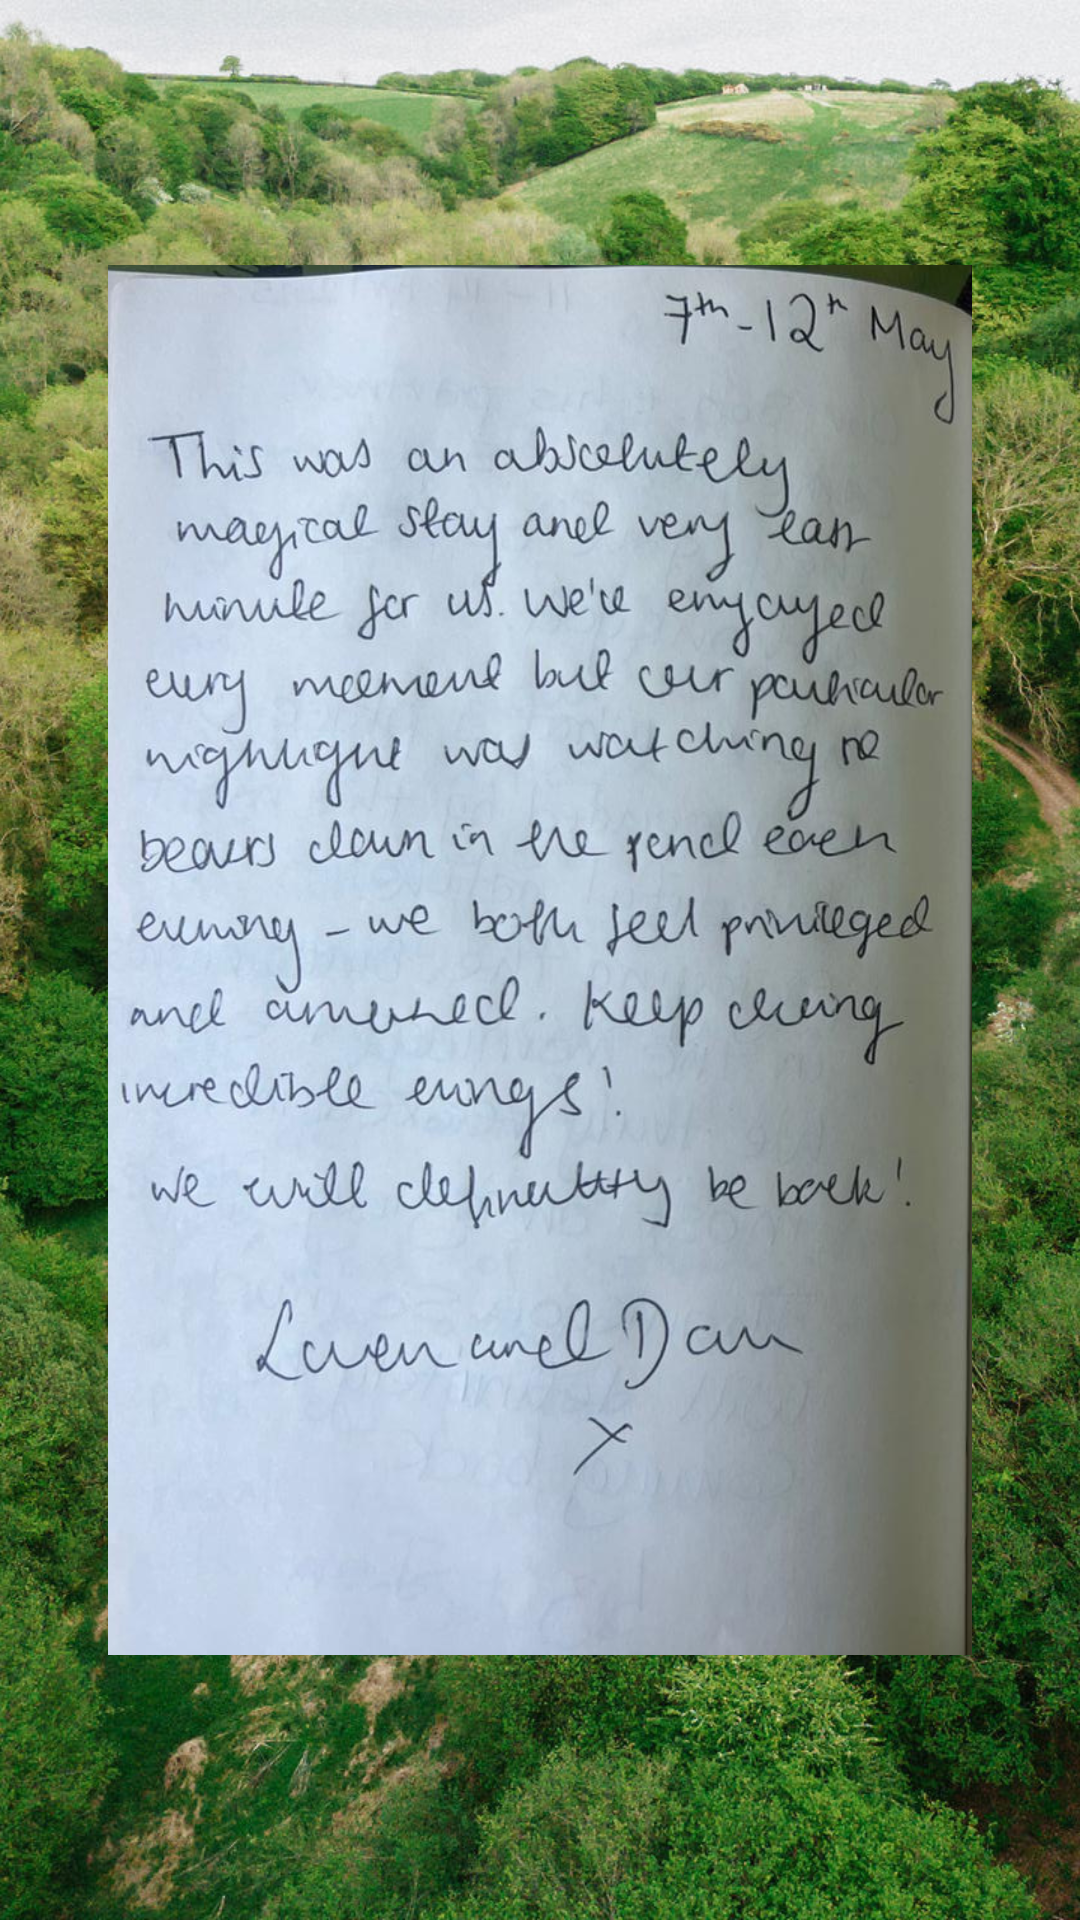 7th - 12th May
This was an absolutely
magical stay and very last
minute for us. We've enjoyed
every moment but our particular
highlight was watching the
beavers down in the pond each
evening - we both feel privileged
and amazed. Keep doing
incredible things!
We will definitely be back!
Lauren and Dan
x